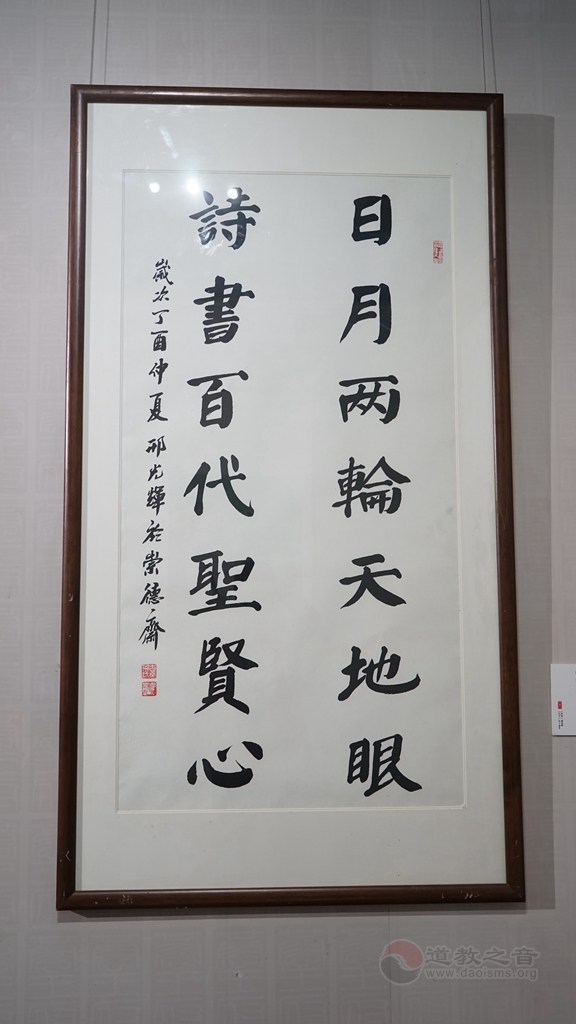 日月两輪天地眼
詩書百代聖賢心
歲次丁酉仲夏邢光輝於崇德齋
道教之音
www.daoisms.org